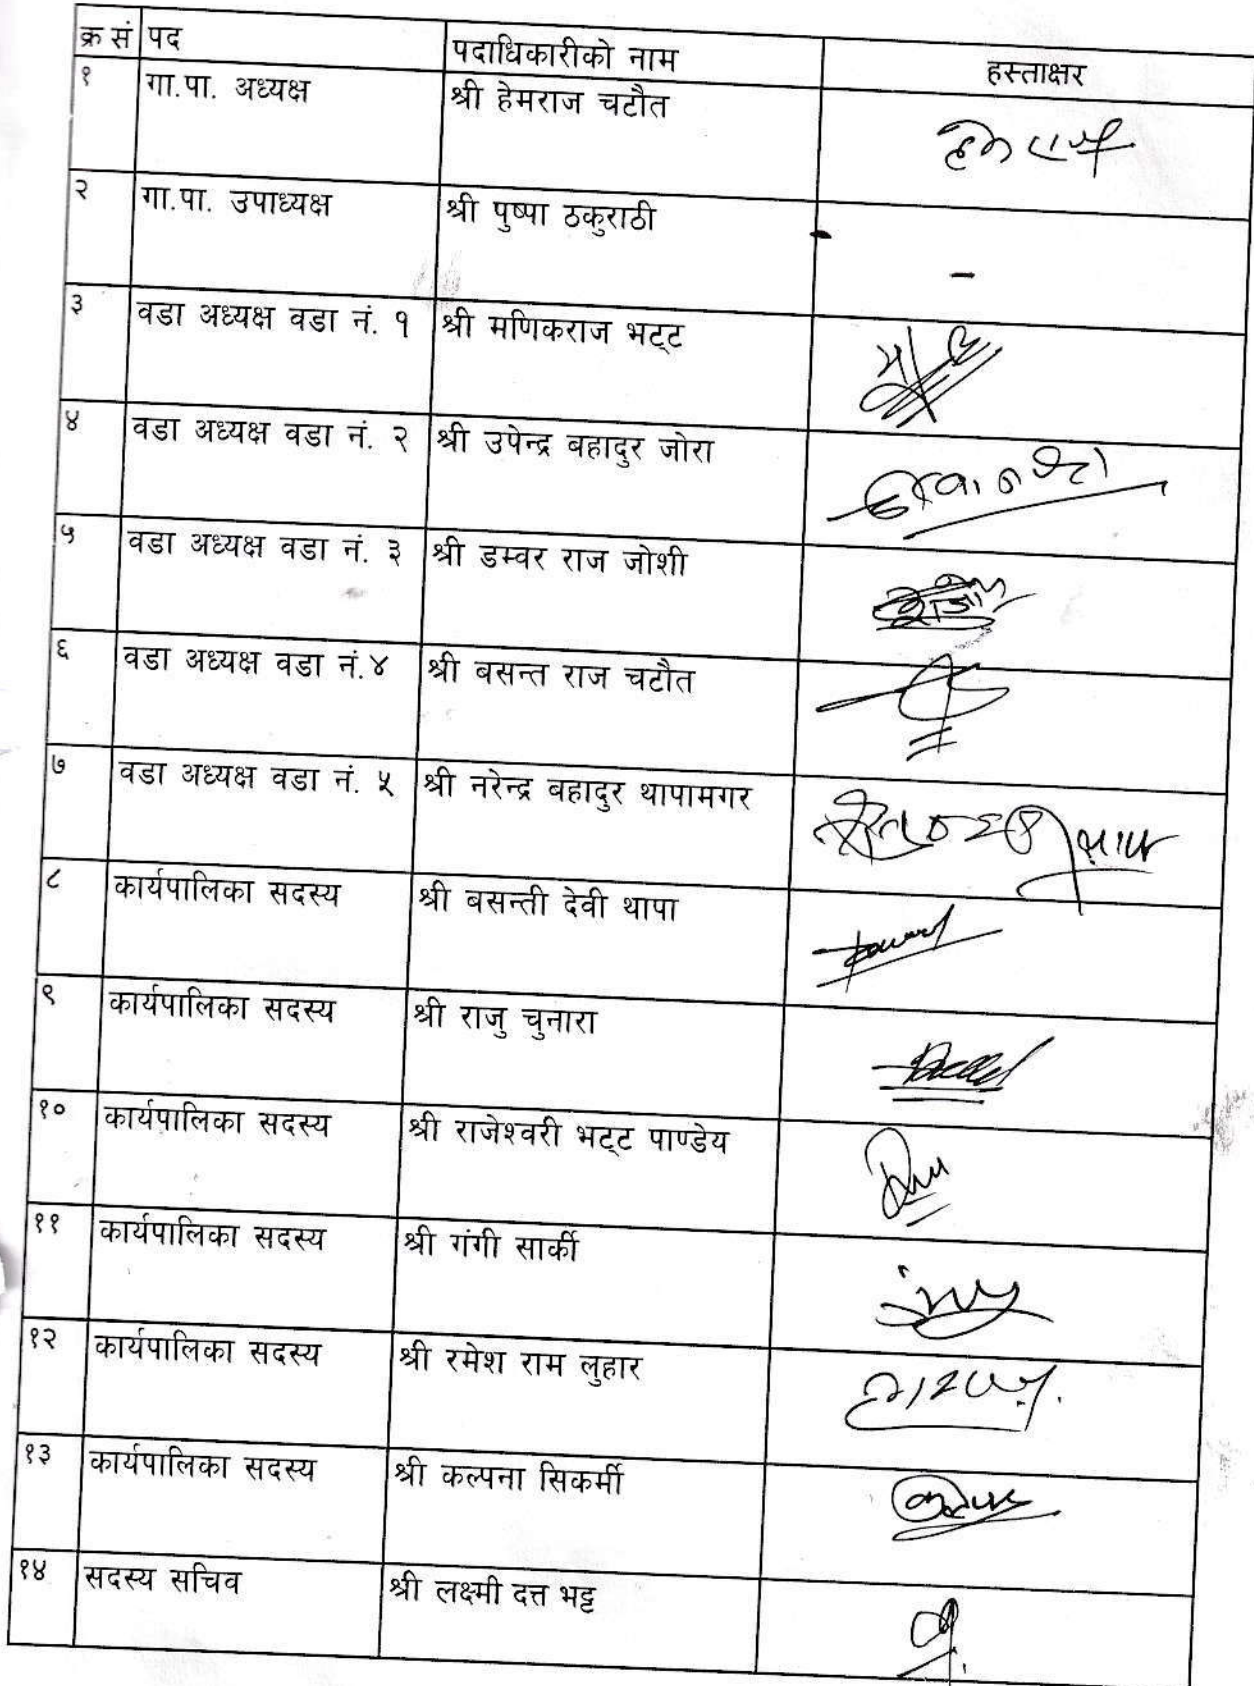 क्र सं पद पदाधिकारीको नाम हस्ताक्षर
१ गा.पा. अध्यक्ष श्री हेमराज चटौत हेमराज
२ गा.पा. उपाध्यक्ष श्री पुष्पा ठकुराठी -
३ वडा अध्यक्ष वडा नं. १ श्री मणिकराज भट्ट
४ वडा अध्यक्ष वडा नं. २ श्री उपेन्द्र बहादुर जोरा
५ वडा अध्यक्ष वडा नं. ३ श्री डम्वर राज जोशी
६ वडा अध्यक्ष वडा नं.४ श्री बसन्त राज चटौत
७ वडा अध्यक्ष वडा नं. ५ श्री नरेन्द्र बहादुर थापामगर
८ कार्यपालिका सदस्य श्री बसन्ती देवी थापा
९ कार्यपालिका सदस्य श्री राजु चुनारा
१० कार्यपालिका सदस्य श्री राजेश्वरी भट्ट पाण्डेय
११ कार्यपालिका सदस्य श्री गंगी सार्की
१२ कार्यपालिका सदस्य श्री रमेश राम लुहार
१३ कार्यपालिका सदस्य श्री कल्पना सिकर्मी
१४ सदस्य सचिव श्री लक्ष्मी दत्त भट्ट